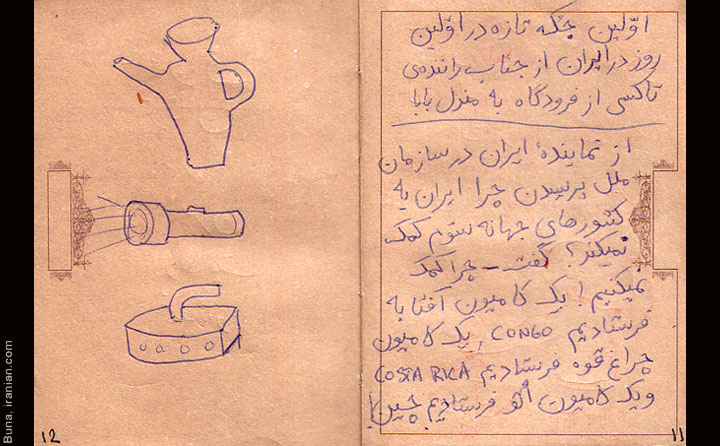 اوّلین جکه تازه در اوّلین
روز در ایران از جناب راننده‌ی
تاکسی از فرودگاه به منزل بابا
از نمایندهٔ ایران در سازمان
ملل پرسیدن چرا ایران به
کشورهای جهانه سوّم کمک
نمیکند؟ گفت — چرا کمک
نمیکنیم! یک کامیون آفتابه
فرستادیم CONGO, یک کامیون
چراغ قوه فرستادیم COSTA RICA
و یک کامیون اُتو فرستادیم چین!
11
12
Buna, iranian.com